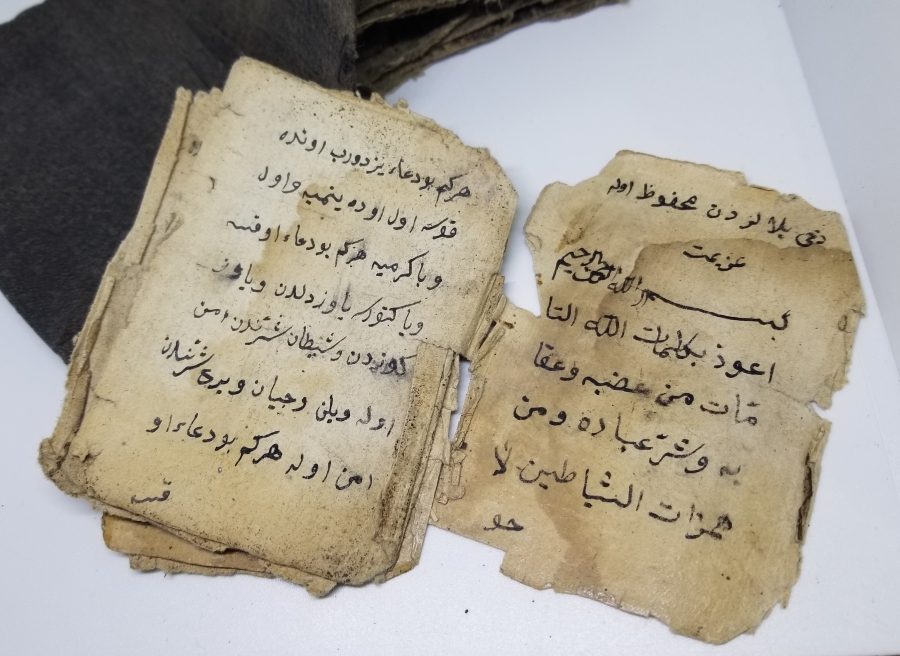 هركم بو دعاء يزدورب اونده
قويه اول اوده ينميه واول
وباكرميه هركم بو دعاء اوقيه
ويا كتوره ياوز دلدن وياوز
كوزدن وشيطان شرندن امن
اوله ويلن وچيان وبرى شرندن
امن اوله هركم بو دعاء او
قيه
دخى بلالردن محفوظ اوله
عزيمت
بسم الله الرحمن الرحيم
اعوذ بكلمات الله التا
مّات من غضبه وعقا
به وشرّ عباده ومن
همزات الشياطين لا
حو